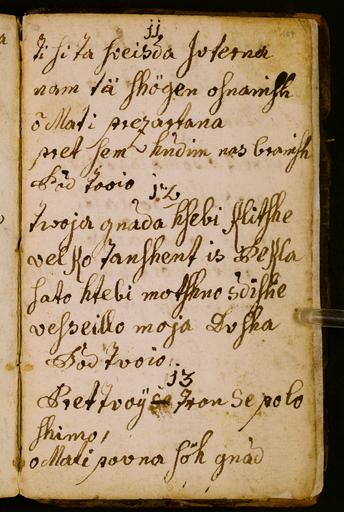 11
ti si ta sveisda Juterna
nam tä shögen osnanish
o Mati prezartana
pret sem hudim nas branish
Pod tvoio
12
tvoja gnada ksebi klitshe
velko tanshent is Pekla
sato ktebi motshno sdishe
vesseillo moja Dusha
Pod tvoio
13
Pret tvoÿ tron Se polo
shimo,
o Mati povna söh gnäd